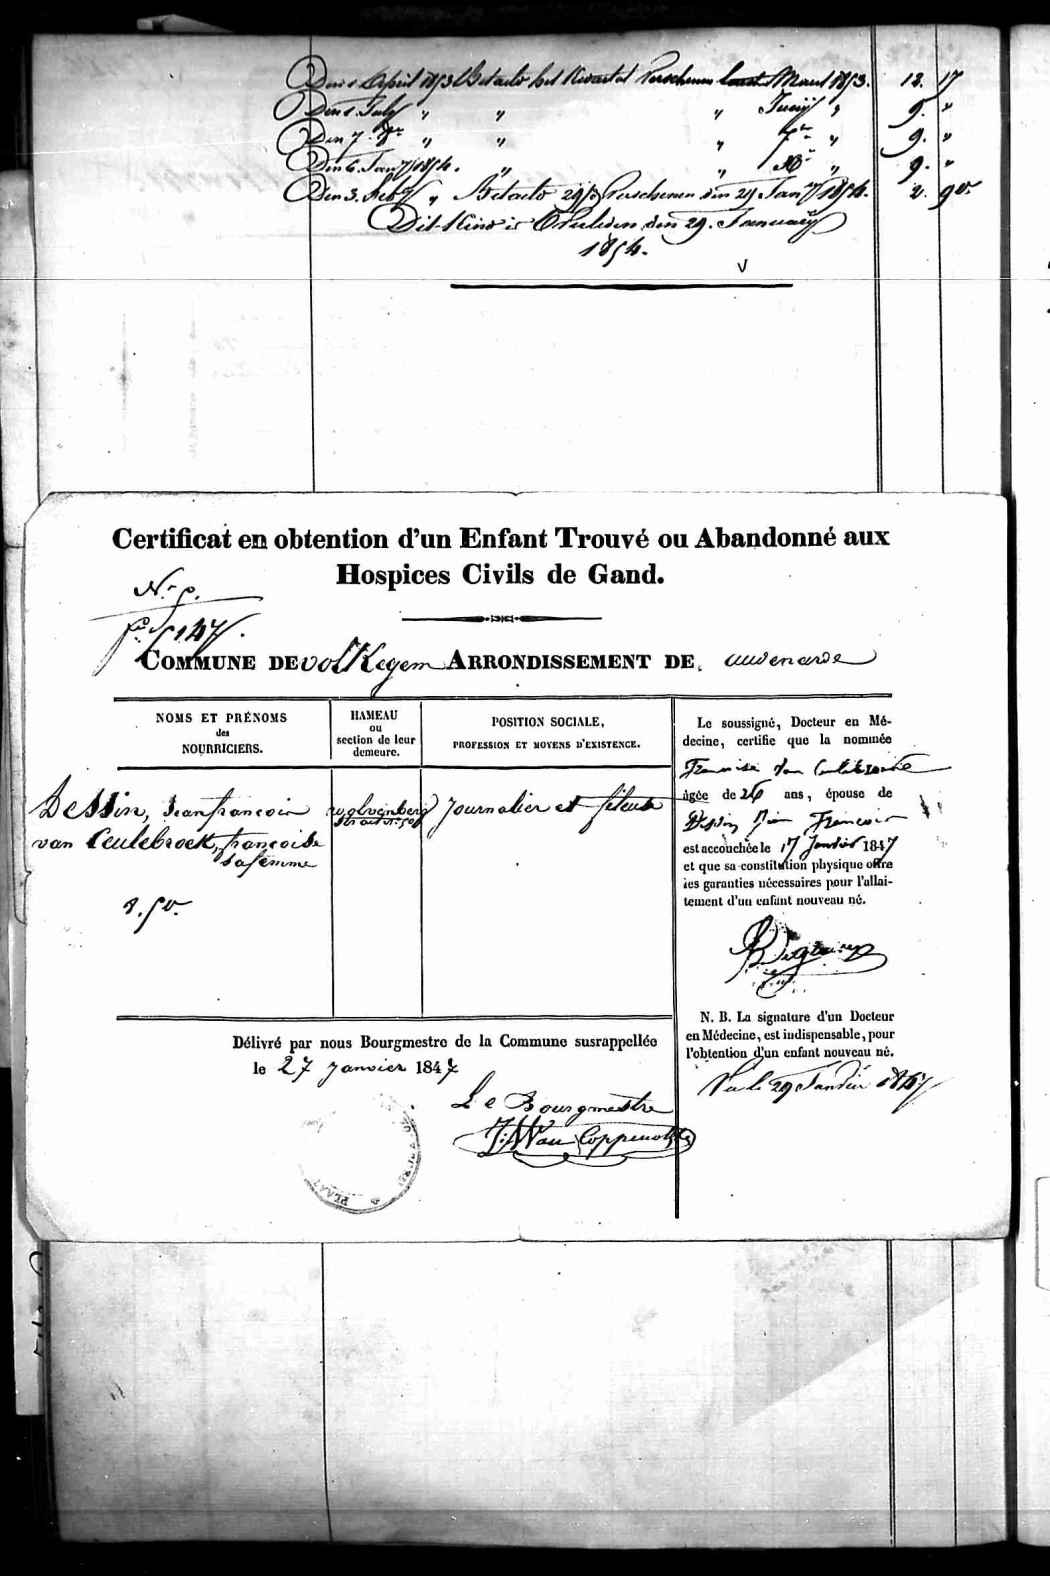 Den 1 April 1853 Betaald het Kwartaal Verschenen Maart 1853. 12. 17
Den 1. July " " " Junij " 9. "
Den 7. 7br " " " 7br " 9. "
Den 6. Jany 1854. " " Xbr " 9. "
Den 3. feby " Betaald Verschenen den 29 Jany 1854. 2. 90
Dit Kind is Overleden den 29. January
1854.
Certificat en obtention d'un Enfant Trouvé ou Abandonné aux
Hospices Civils de Gand.
COMMUNE DE volkegem ARRONDISSEMENT DE audenarde
NOMS ET PRÉNOMS
des
NOURRICIERS.
HAMEAU
ou
section de leur
demeure.
POSITION SOCIALE,
PROFESSION ET MOYENS D'EXISTENCE.
Dessin, Jean francois
van Ceulebroek, francoise
sa femme
8.50.
journalier et fileuse
Le soussigné, Docteur en Mé-
decine, certifie que la nommée
Francoise Van Ceulebroeck
âgée de 26 ans, épouse de
Dessin Jean Francois
est accouchée le 17 Janvier 1847
et que sa constitution physique offre
les garanties nécessaires pour l'allai-
tement d'un enfant nouveau né.
N. B. La signature d'un Docteur
en Médecine, est indispensable, pour
l'obtention d'un enfant nouveau né.
Vu le 29 Janvier 1847
Délivré par nous Bourgmestre de la Commune susrappellée
le 27 janvier 1847
Le Bourgmestre